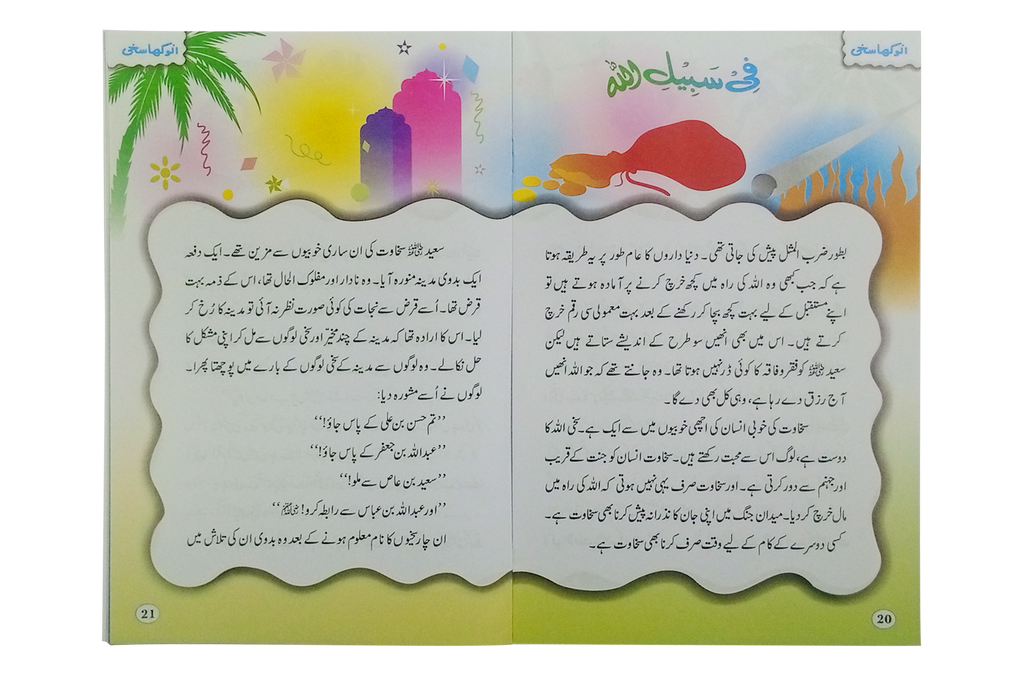 انوکھا سخی
فِیْ سَبِیْلِ اللہ
بطور ضرب المثل پیش کی جاتی تھی۔ دنیا داروں کا عام طور پر یہ طریقہ ہوتا
ہے کہ جب کبھی وہ اللہ کی راہ میں کچھ خرچ کرنے پر آمادہ ہوتے ہیں تو
اپنے مستقبل کے لیے بہت کچھ بچا کر رکھنے کے بعد بہت معمولی سی رقم خرچ
کرتے ہیں۔ اس میں بھی انھیں سو طرح کے اندیشے ستاتے ہیں لیکن
سعید رضی اللہ عنہ کو فقر و فاقہ کا کوئی ڈر نہیں ہوتا تھا۔ وہ جانتے تھے کہ جو اللہ انھیں
آج رزق دے رہا ہے، وہی کل بھی دے گا۔
سخاوت کی خوبی انسان کی اچھی خوبیوں میں سے ایک ہے۔ سخی اللہ کا
دوست ہے، لوگ اس سے محبت رکھتے ہیں۔ سخاوت انسان کو جنت کے قریب
اور جہنم سے دور کرتی ہے۔ اور سخاوت صرف یہی نہیں ہوتی کہ اللہ کی راہ میں
مال خرچ کر دیا۔ میدان جنگ میں اپنی جان کا نذرانہ پیش کرنا بھی سخاوت ہے۔
کسی دوسرے کے کام کے لیے وقت صرف کرنا بھی سخاوت ہے۔
20
انوکھا سخی
سعید رضی اللہ عنہ سخاوت کی ان ساری خوبیوں سے مزین تھے۔ ایک دفعہ
ایک بدوی مدینہ منورہ آیا۔ وہ نادار اور مفلوک الحال تھا، اس کے ذمہ بہت
قرض تھا۔ اُسے قرض سے نجات کی کوئی صورت نظر نہ آئی تو مدینہ کا رُخ کر
لیا۔ اس کا ارادہ تھا کہ مدینہ کے چند مخیّر اور سخی لوگوں سے مل کر اپنی مشکل کا
حل نکالے۔ وہ لوگوں سے مدینہ کے سخی لوگوں کے بارے میں پوچھتا پھرا۔
لوگوں نے اُسے مشورہ دیا:
’’تم حسن بن علی کے پاس جاؤ!‘‘
’’عبداللہ بن جعفر کے پاس جاؤ!‘‘
’’سعید بن عاص سے ملو!‘‘
’’اور عبداللہ بن عباس سے رابطہ کرو! رضی اللہ عنہم‘‘
ان چار سخیوں کا نام معلوم ہونے کے بعد وہ بدوی ان کی تلاش میں
21